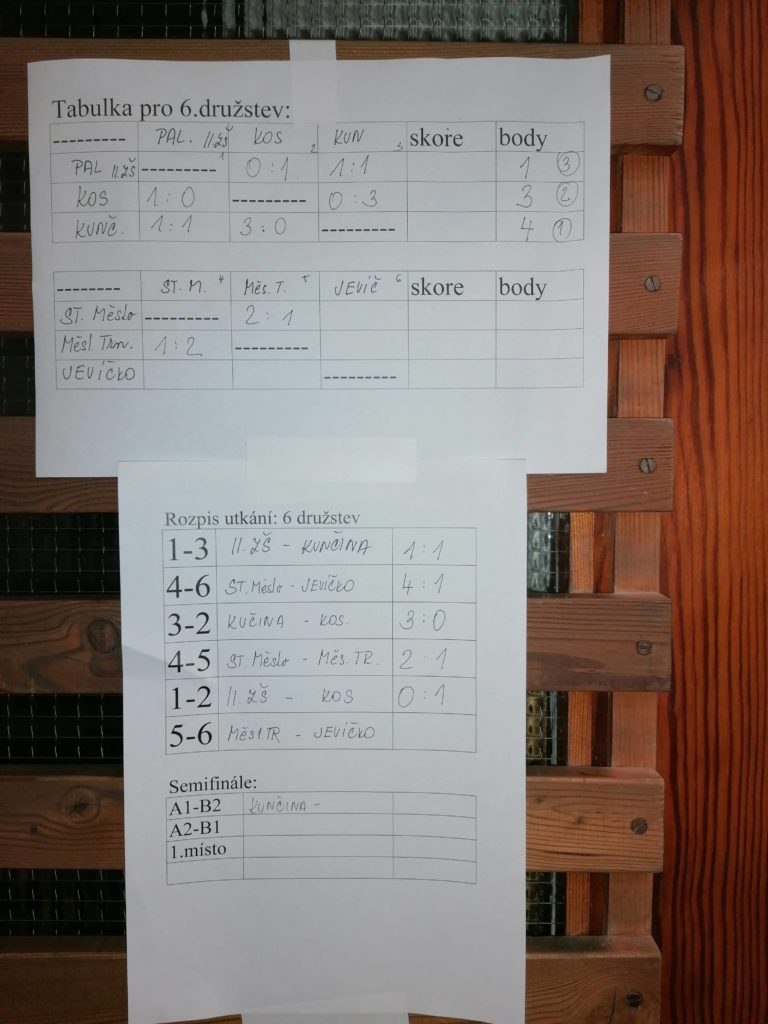 Tabulka pro 6.družstev:
--------- PAL. II.ZŠ 1 KOS 2 KUN 3 skore body
PAL II.ZŠ --------- 0:1 1:1 1 3
KOS 1:0 --------- 0:3 3 2
KUNČ. 1:1 3:0 --------- 4 1
-------- ST. M. 4 Měs. T. 5 JEVIČ 6 skore body
ST. Město --------- 2:1
Měst. Trn. 1:2 ---------
JEVÍČKO ---------
Rozpis utkání: 6 družstev
1-3 II. ZŠ - KUNČINA 1:1
4-6 ST. Město - JEVÍČKO 4:1
3-2 KUČINA - KOS. 3:0
4-5 ST. Město - Měs. TR. 2:1
1-2 II. ZŠ - KOS 0:1
5-6 Měst. TR - JEVÍČKO
Semifinále:
A1-B2 KUNČINA -
A2-B1
1.místo